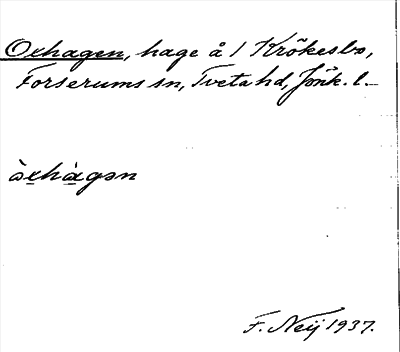 Oxhagen, hage å 1 Krökesbo,
Forserums sn, Tveta hd, Jönk. l.
òxhàgən
F. Neij 1937.